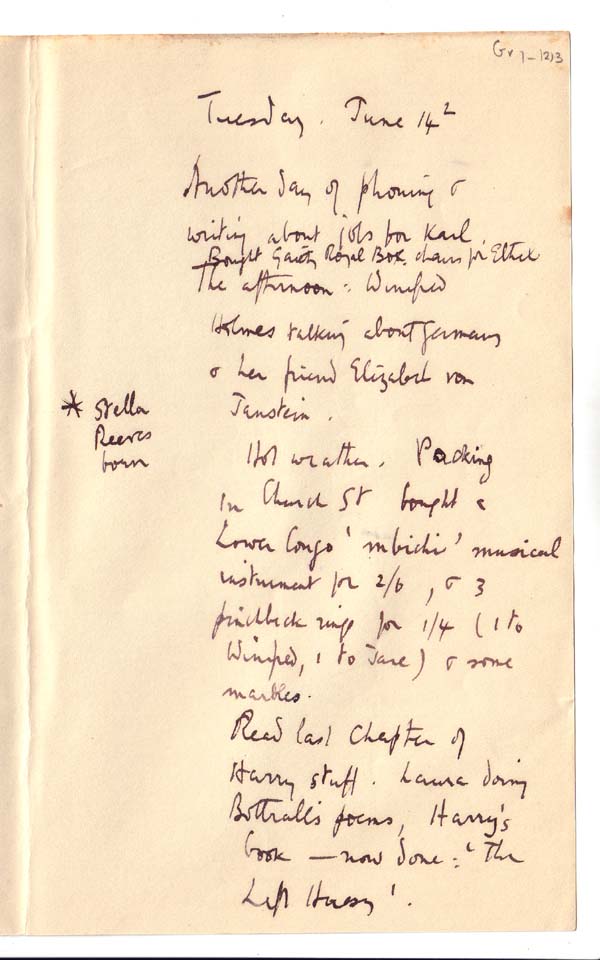 Gv 7-1213
Tuesday. June 14²
Another day of phoning &
writing about jobs for Karl.
Bought Gaiety Royal Box chairs for Ethel
The afternoon: Winifred
Holmes talking about Germany
& her friend Elizabeth von
Janstein.
* Stella
Reeves
born
Hot weather. Packing
In Church St bought a
Lower Congo 'mbichi' musical
instrument for 2/6, & 3
pinchbeck rings for 1/4 (1 to
Winifred, 1 to Jane) & some
marbles.
Read last chapter of
Harry stuff. Laura doing
Bottrall's poems, Harry's
book — now done: 'The
Left Heresy'.